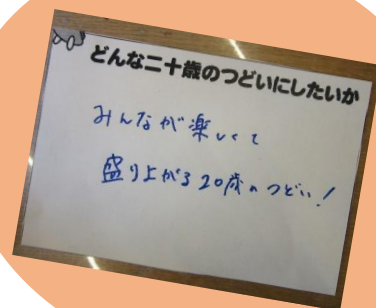 どんな二十歳のつどいにしたいか
みんなが楽しくて
盛り上がる20歳のつどい！